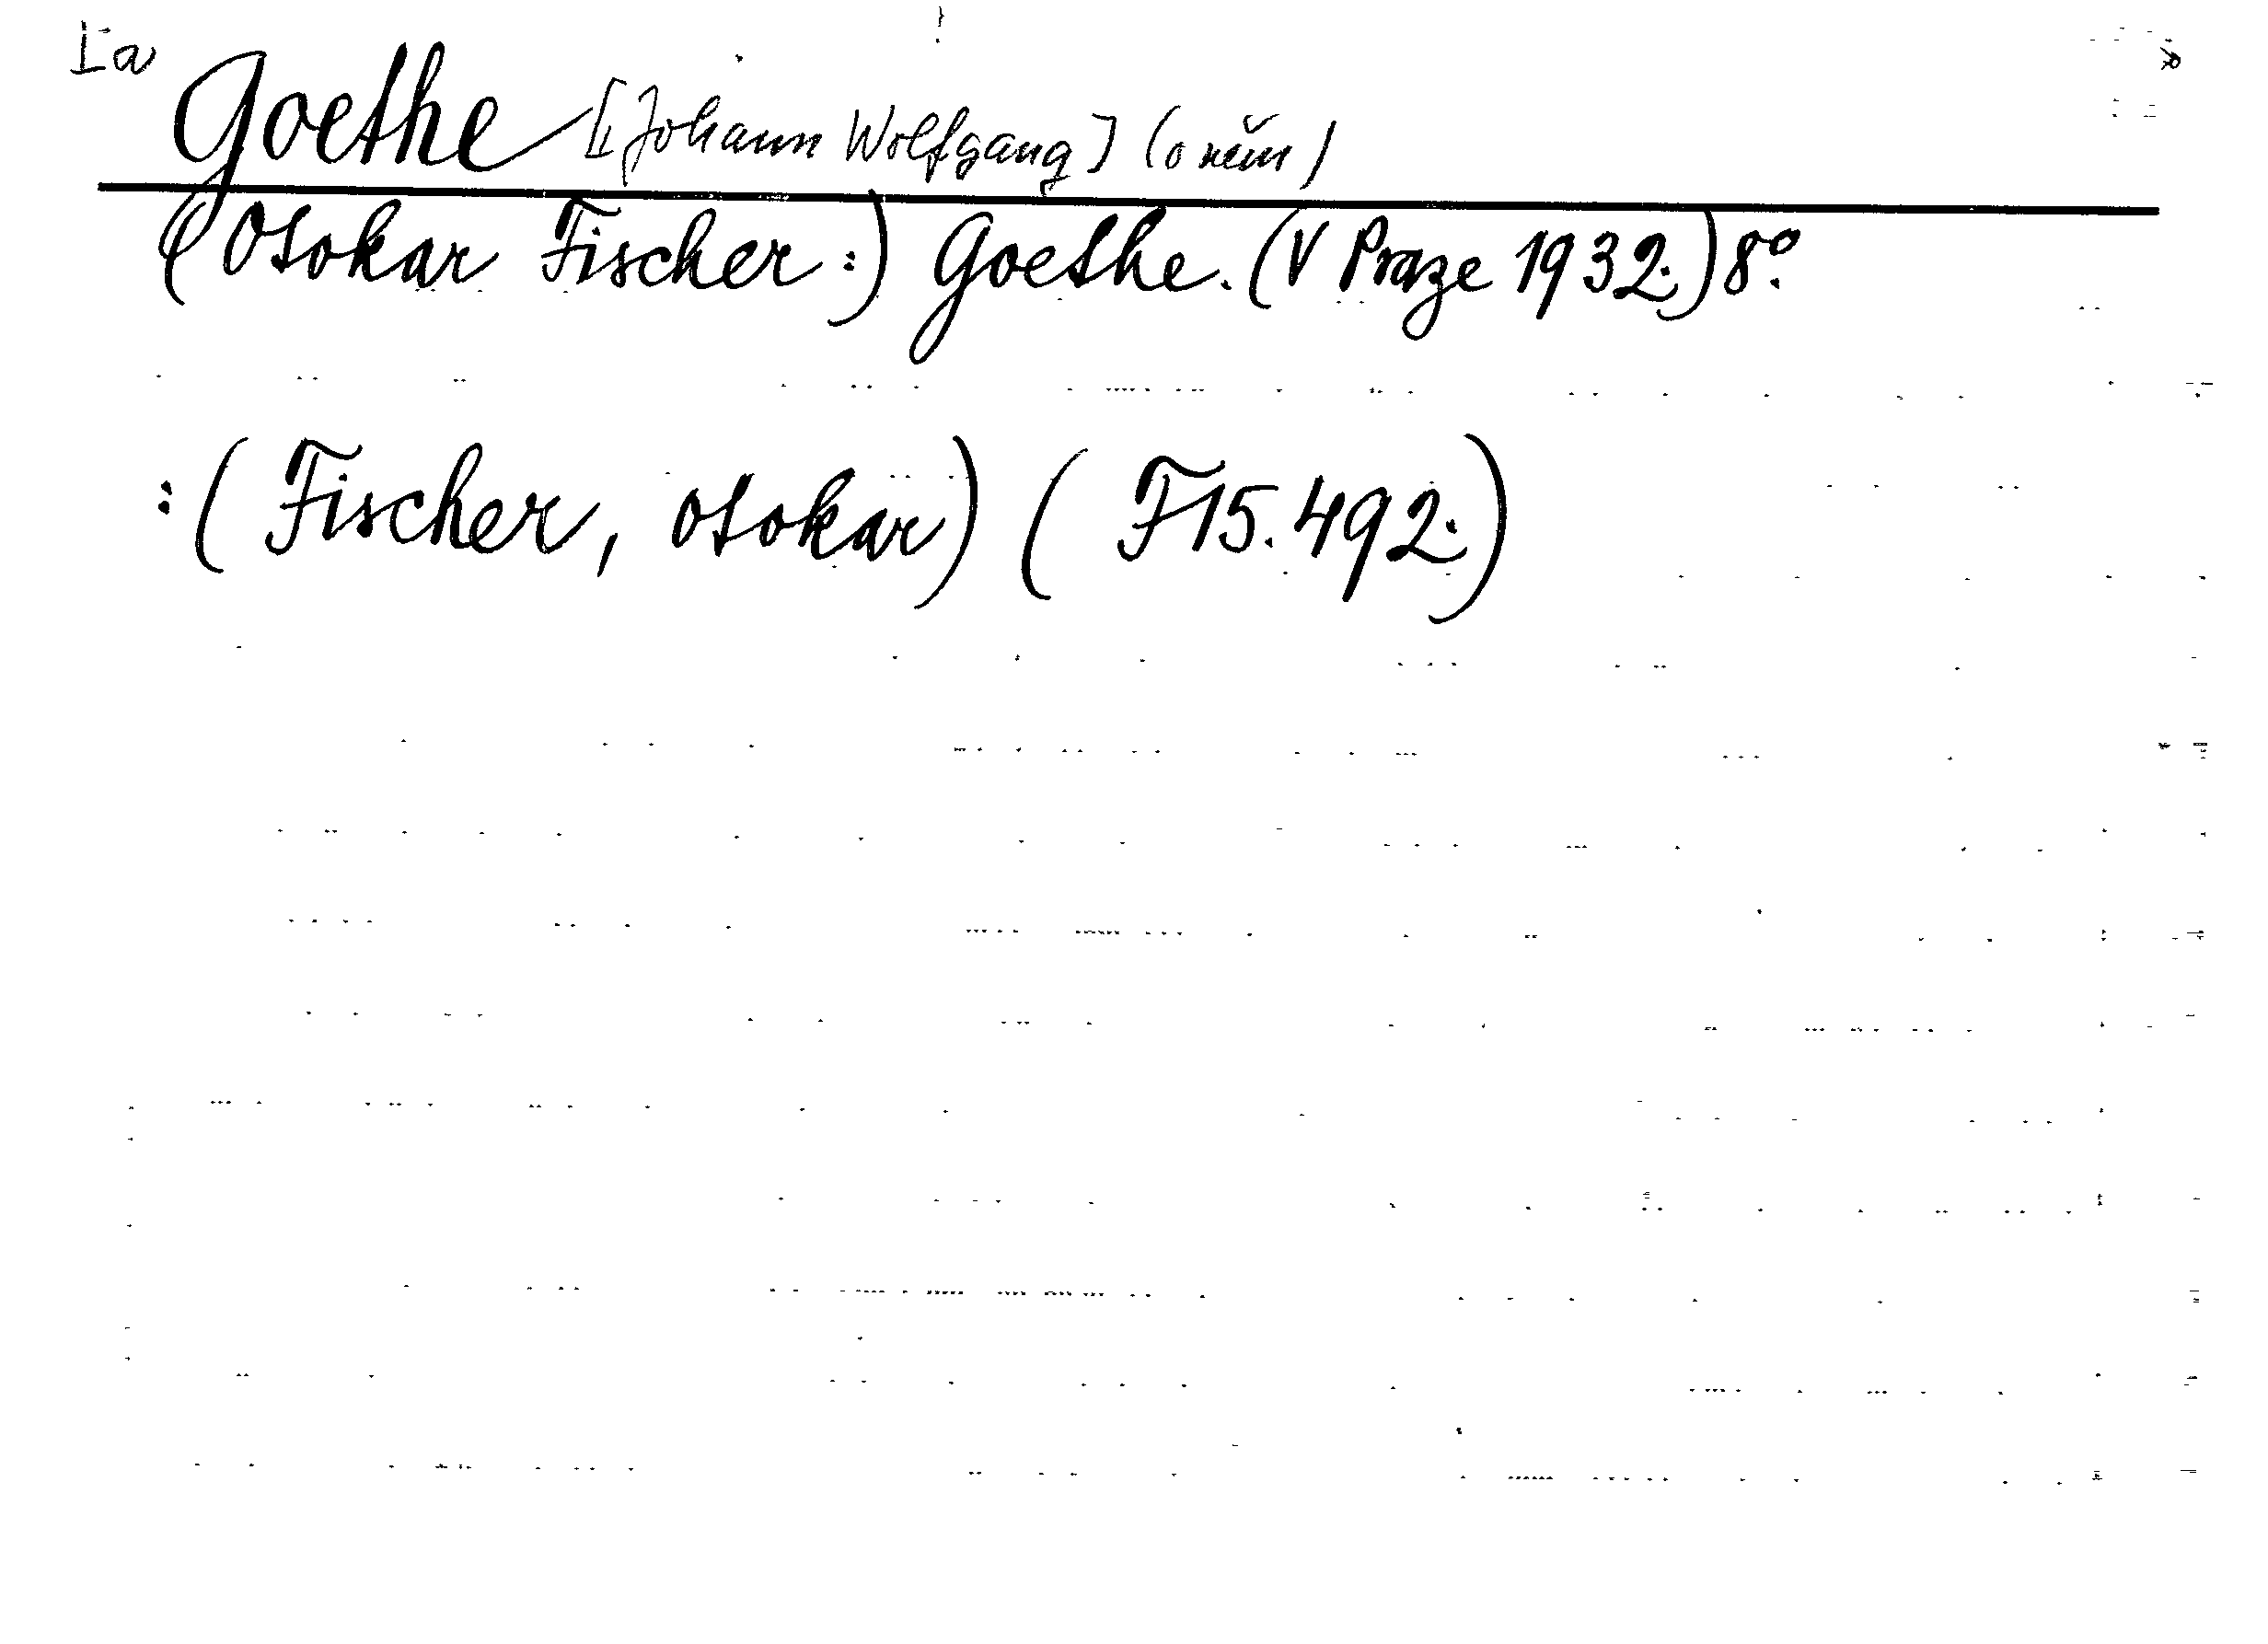 Ia Goethe [Johann Wolfgang] (o něm)
(Otokar Fischer:) Goethe. (V Praze 1932.) 8°.
:(Fischer, Otokar) (F15.492.)